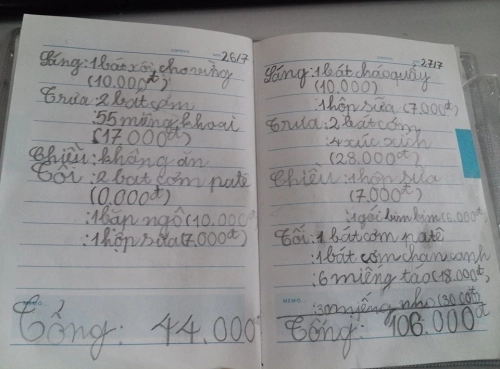 26/7
Sáng: 1 bát xôi cho ruừng
(10.000đ)
Trưa: 2 bát cơm
: 55 miếng khoai
(17.000đ)
Chiều: không ăn
Tối: 2 bat cơm patê
(0,000đ)
: 1 bắp ngô (10.000đ)
: 1 hộp sữa (7.000đ)
MEMO
Tổng: 44.000đ
27/7
Sáng: 1 bát cháo quẩy
(10.000)
1 hộp sữa (7.000đ)
Trưa: 2 bát cơm
: 4 xúc xích
(28.000đ)
Chiều: 1 hộp sữa
(7.000đ)
: 1 gói bim bim (6.000đ)
Tối: 1 bát cơm patê
: 1 bát cơm chan canh
: 6 miếng táo (18.000đ)
MEMO
: 3 miếng nho (30.000đ)
Tổng: 106.000đ